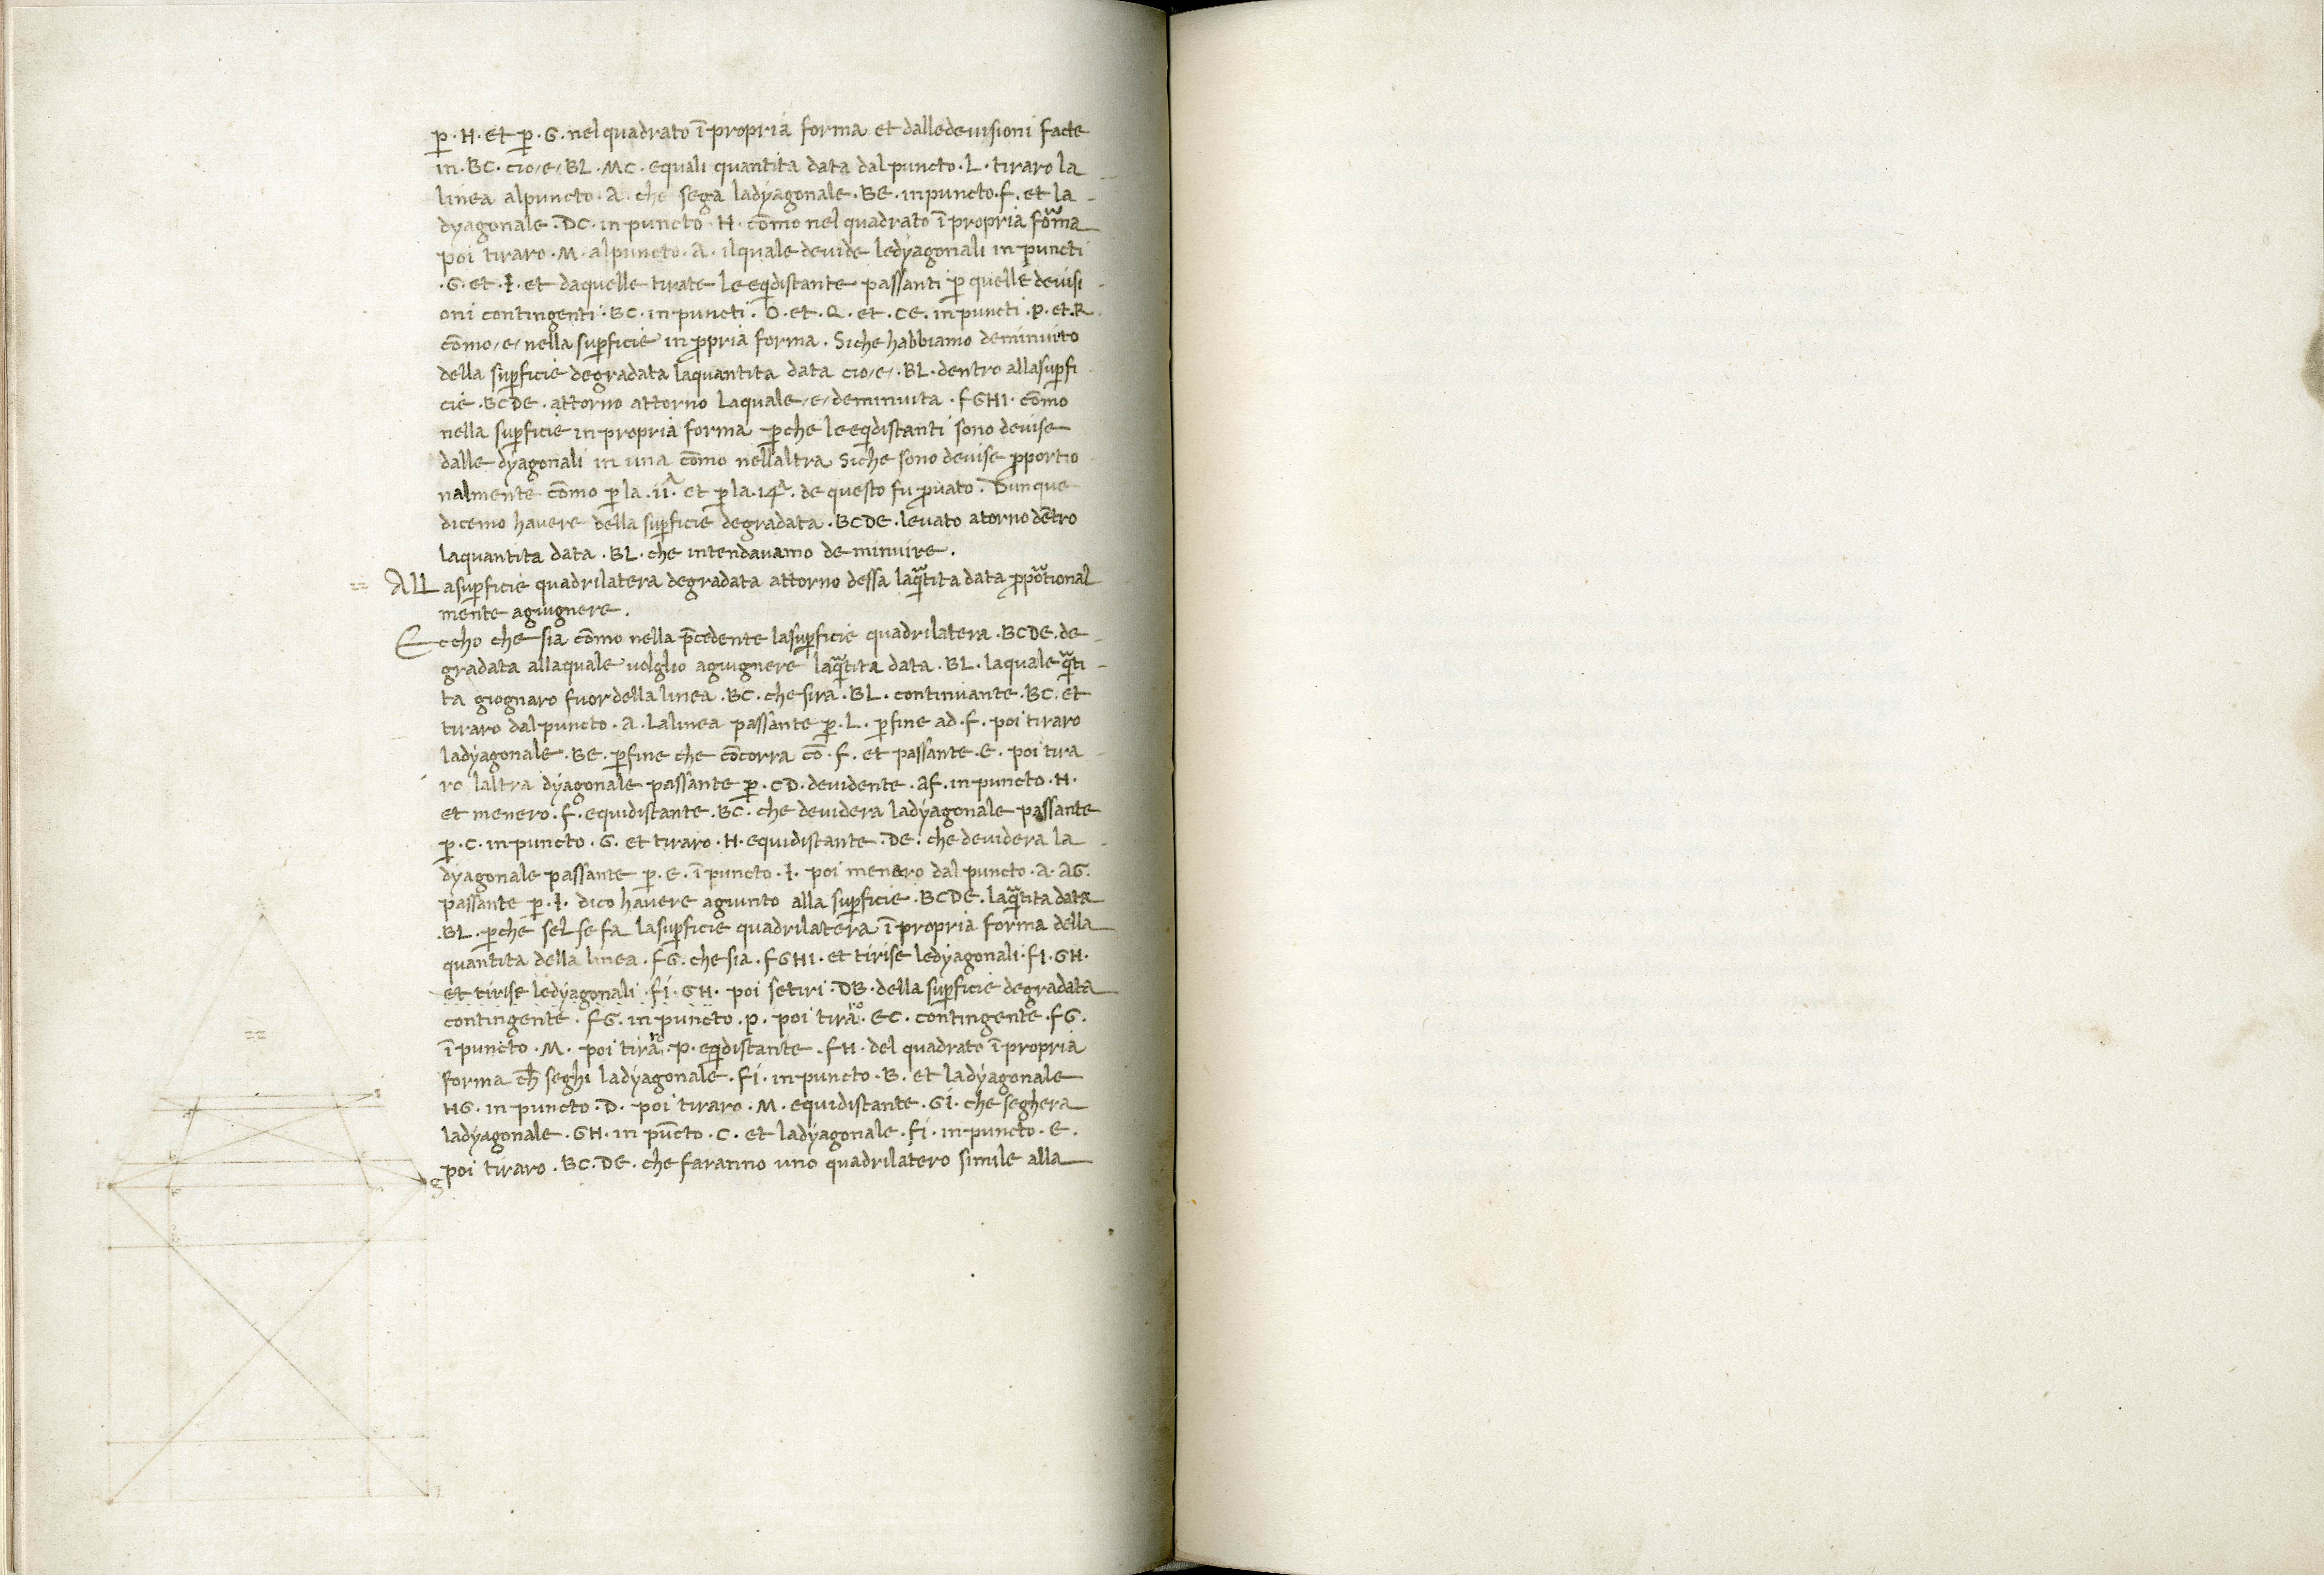 p̱ · H · et p̱ · G · nel quadrato ī propria forma et dalledeuisioni facte
in · BC · cio / e / BL · MC · equali quantita data dal puncto · L · tiraro la
linea alpuncto · A · che sega ladyagonale · BE · inpuncto · f · et la
dyagonale · DC · in puncto · H · cōmo nel quadrato ī propria foma
poi tiraro · M · alpuncto · A · ilquale deuide ledyagonali in puncti
· G · et · I · et daquelle tirate le eqdistante passanti p̱ quelle deuisi
oni contingenti · BC · in puncti · O · et · Q · et · CE · in puncti · P · et · R ·
cōmo / e / nella sup̱ficie in p̱pria forma . Siche habbiamo deminuito
della sup̱ficie degradata laquantita data cio / e / · BL · dentro allasup̱fi
cie · BCDE · attorno attorno laquale / e / deminuita · fGHI · cōmo
nella sup̱ficie in propria forma p̱che le eqdistanti sono deuise
dalle dyagonali in una cōmo nellaltra Siche sono deuise p̱portio
nalmente cōmo p̱ la · 11ª · et p̱ la · 14ª · de questo fu p̱uato . Dunque
dicemo hauere della sup̱ficie degradata · BCDE · leuato atorno dētro
laquantita data · BL · che intendauamo deminuire .
= ALL asup̱ficie quadrilatera degradata attorno dessa laq̄tita data p̱potional
mente agiugnere .
E ccho che sia cōmo nella p̄cedente lasup̱ficie quadrilatera · BCDE · de
gradata allaquale uolglio agiugnere laq̄tita data · BL · laquale q̄ti
ta giognaro fuor della linea · BC · che sira · BL · continuante · BC · et
tiraro dal puncto · A · La linea passante p̱ · L · p̱fine ad · f · poi tiraro
ladyagonale · BE · p̱fine che cōcorra cō · f · et passante · E · poi tira
ro laltra dyagonale passante p̱ · CD · deuidente · Af · in puncto · H ·
et menero · f · equidistante · BC · che deuidera ladyagonale passante
p̱ · C · in puncto · G · et tiraro · H · equidistante · DE · che deuidera la
dyagonale passante p̱ · E · ī puncto · I · poi menaro dal puncto · A · AG ·
passante p̱ · I · dico hauere agiunto alla sup̱ficie · BCDE · laq̄tita data
· BL · p̱che sel se fa lasup̱ficie quadrilatera ī propria forma della
quantita della linea · fG · che sia · fGHI · et tirise ledyagonali · fI · GH ·
et tirise ledyagonali · fi · GH · poi setiri · DB · della sup̱ficie degradata
contingente · fG · in puncto · P · poi tiraro · EC · contingente · fG ·
ī puncto · M · poi tiraro · P · eqdistante · fH · del quadrato ī propria
forma ch̄ seghi ladyagonale · fi · in puncto · B · et ladyagonale
HG · in puncto · D · poi tiraro · M · equidistante · Gi · che seghera
ladyagonale · GH · in pūcto · C · et ladyagonale · fi · in puncto · E ·
poi tiraro · BC · DE · che faranno uno quadrilatero simile alla
g